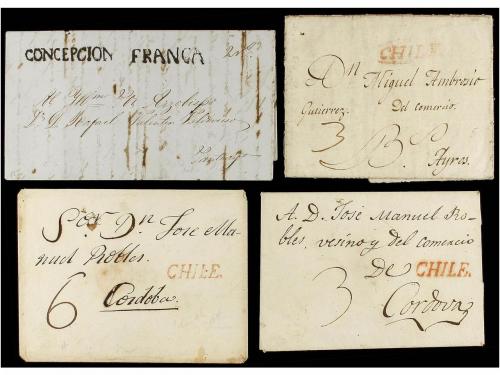 CONCEPCION FRANCA
Al Yllmo
Dr. D. Rafael Valentin Valdivieso
Santiago
CHILE.
A Dn Miguel Ambrosio
Gutierrez. Del comercio.
3 Bs. Ayres.
Sor. Dn Jose Ma-
nuel Robles.
CHILE.
6 Cordoba.
A. D. José Manuel Ro-
bles, vesino y del comercio
De CHILE.
3 Cordova